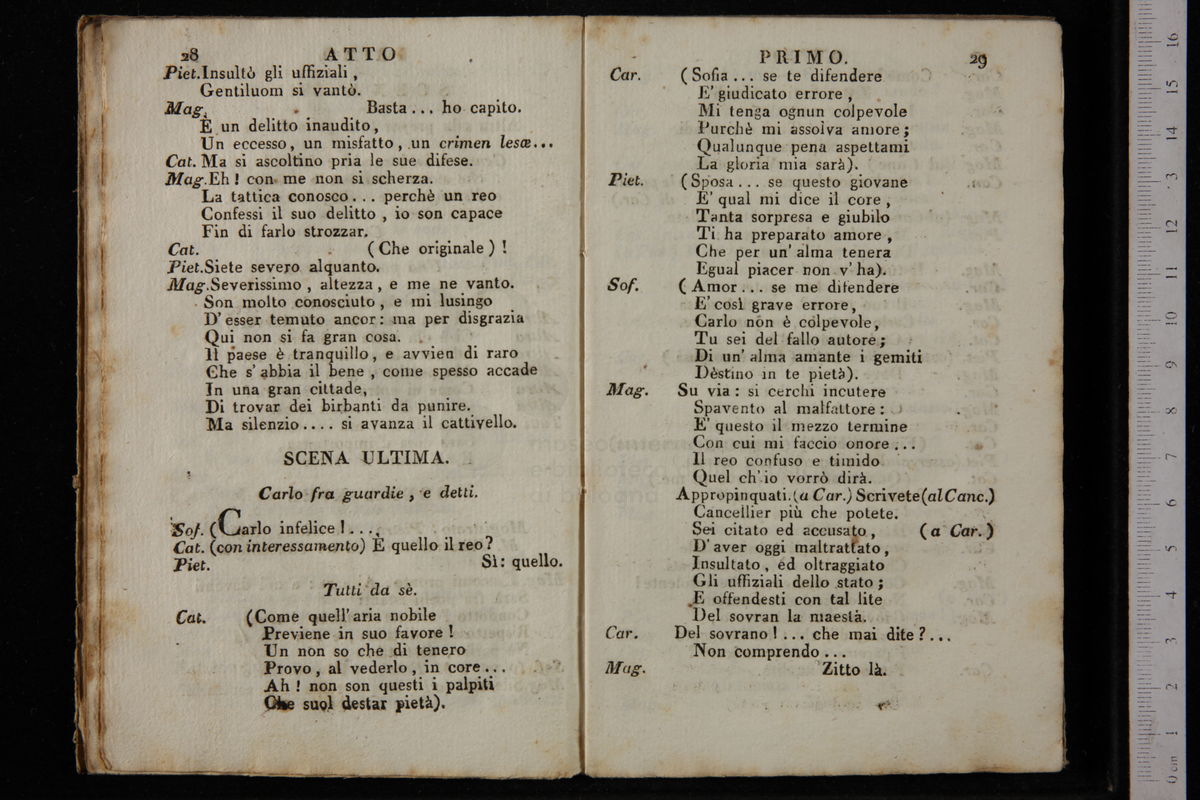 28 ATTO
Piet. Insultò gli uffiziali,
Gentiluom si vantò.
Mag. Basta... ho capito.
È un delitto inaudito,
Un eccesso, un misfatto, un crimen lesæ...
Cat. Ma si ascoltino pria le sue difese.
Mag. Eh! con me non si scherza.
La tattica conosco... perchè un reo
Confessi il suo delitto, io son capace
Fin di farlo strozzar.
Cat. (Che originale)!
Piet. Siete severo alquanto.
Mag. Severissimo, altezza, e me ne vanto.
Son molto conosciuto, e mi lusingo
D'esser temuto ancor: ma per disgrazia
Qui non si fa gran cosa.
Il paese è tranquillo, e avvien di raro
Che s'abbia il bene, come spesso accade
In una gran cittade,
Di trovar dei birbanti da punire.
Ma silenzio.... si avanza il cattivello.
SCENA ULTIMA.
Carlo fra guardie, e detti.
Sof. (Carlo infelice!...
Cat. (con interessamento) È quello il reo?
Piet. Sì: quello.
Tutti da sè.
Cat. (Come quell'aria nobile
Previene in suo favore!
Un non so che di tenero
Provo, al vederlo, in core...
Ah! non son questi i palpiti
Che suol destar pietà).
PRIMO. 29
Car. (Sofia... se te difendere
E' giudicato errore,
Mi tenga ognun colpevole
Purchè mi assolva amore;
Qualunque pena aspettami
La gloria mia sarà).
Piet. (Sposa... se questo giovane
E' qual mi dice il core,
Tanta sorpresa e giubilo
Ti ha preparato amore,
Che per un'alma tenera
Egual piacer non v'ha).
Sof. (Amor... se me difendere
E' così grave errore,
Carlo non è colpevole,
Tu sei del fallo autore;
Di un'alma amante i gemiti
Dèstino in te pietà).
Mag. Su via: si cerchi incutere
Spavento al malfattore:
E' questo il mezzo termine
Con cui mi faccio onore...
Il reo confuso e timido
Quel ch'io vorrò dirà.
Appropinquati. (a Car.) Scrivete (al Canc.)
Cancellier più che potete.
Sei citato ed accusato, (a Car.)
D'aver oggi maltrattato,
Insultato, ed oltraggiato
Gli uffiziali dello stato;
E offendesti con tal lite
Del sovran la maestà.
Car. Del sovrano!... che mai dite?...
Non comprendo...
Mag. Zitto là.